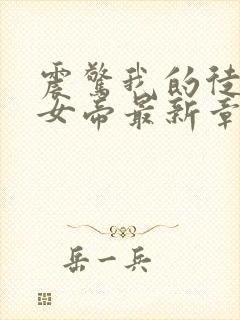 震驚我的徒
女帝最新章
岳一兵